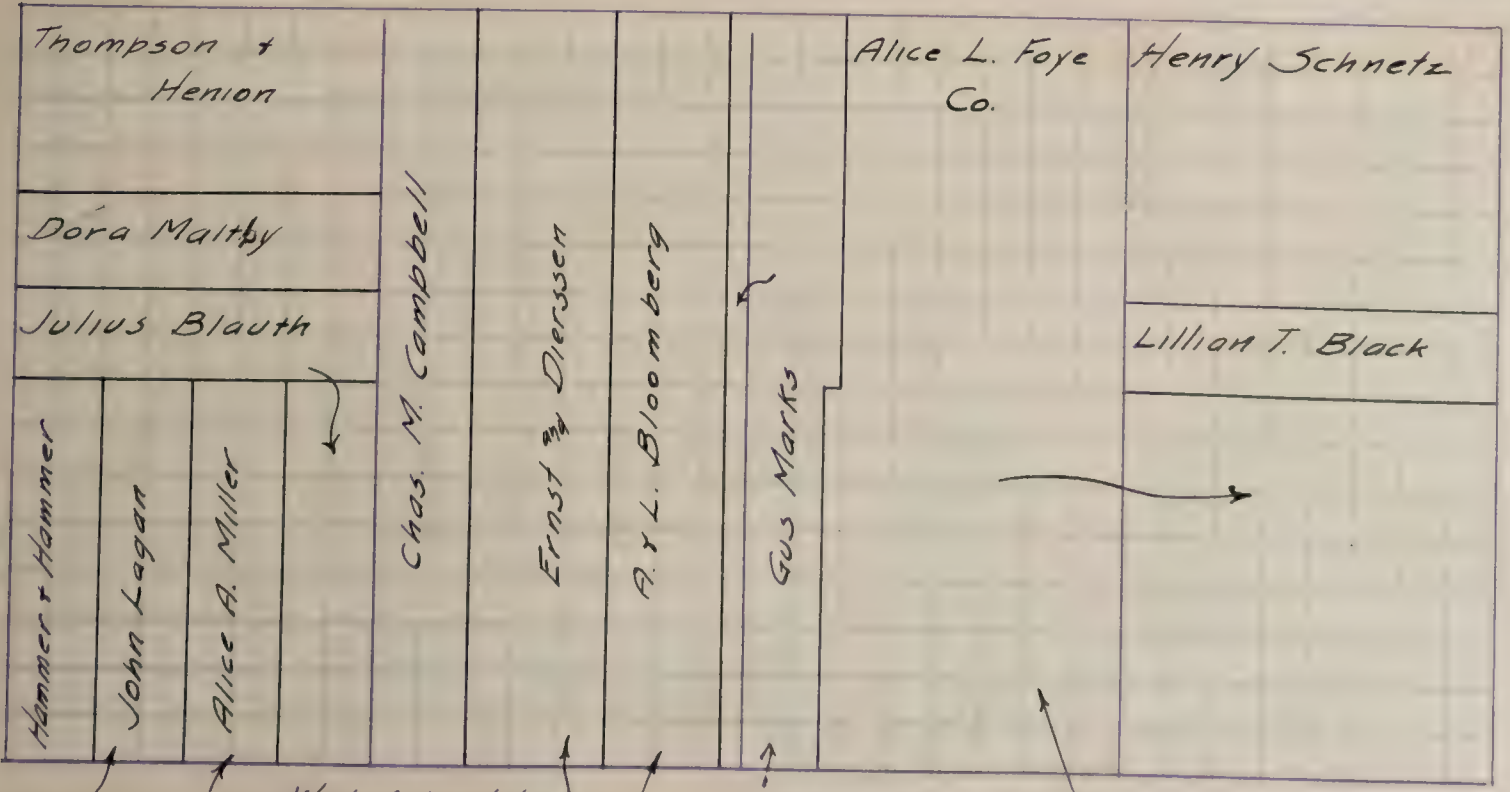 Thompson &
Henion
Dora Maltby
Julius Blauth
Hammer & Hammer
John Lagan
Alice A. Miller
Chas. M. Campbell
Ernst Dierssen
A. & L. Bloomberg
Gus Marks
Alice L. Foye
Co.
Henry Schnetz
Lillian T. Black